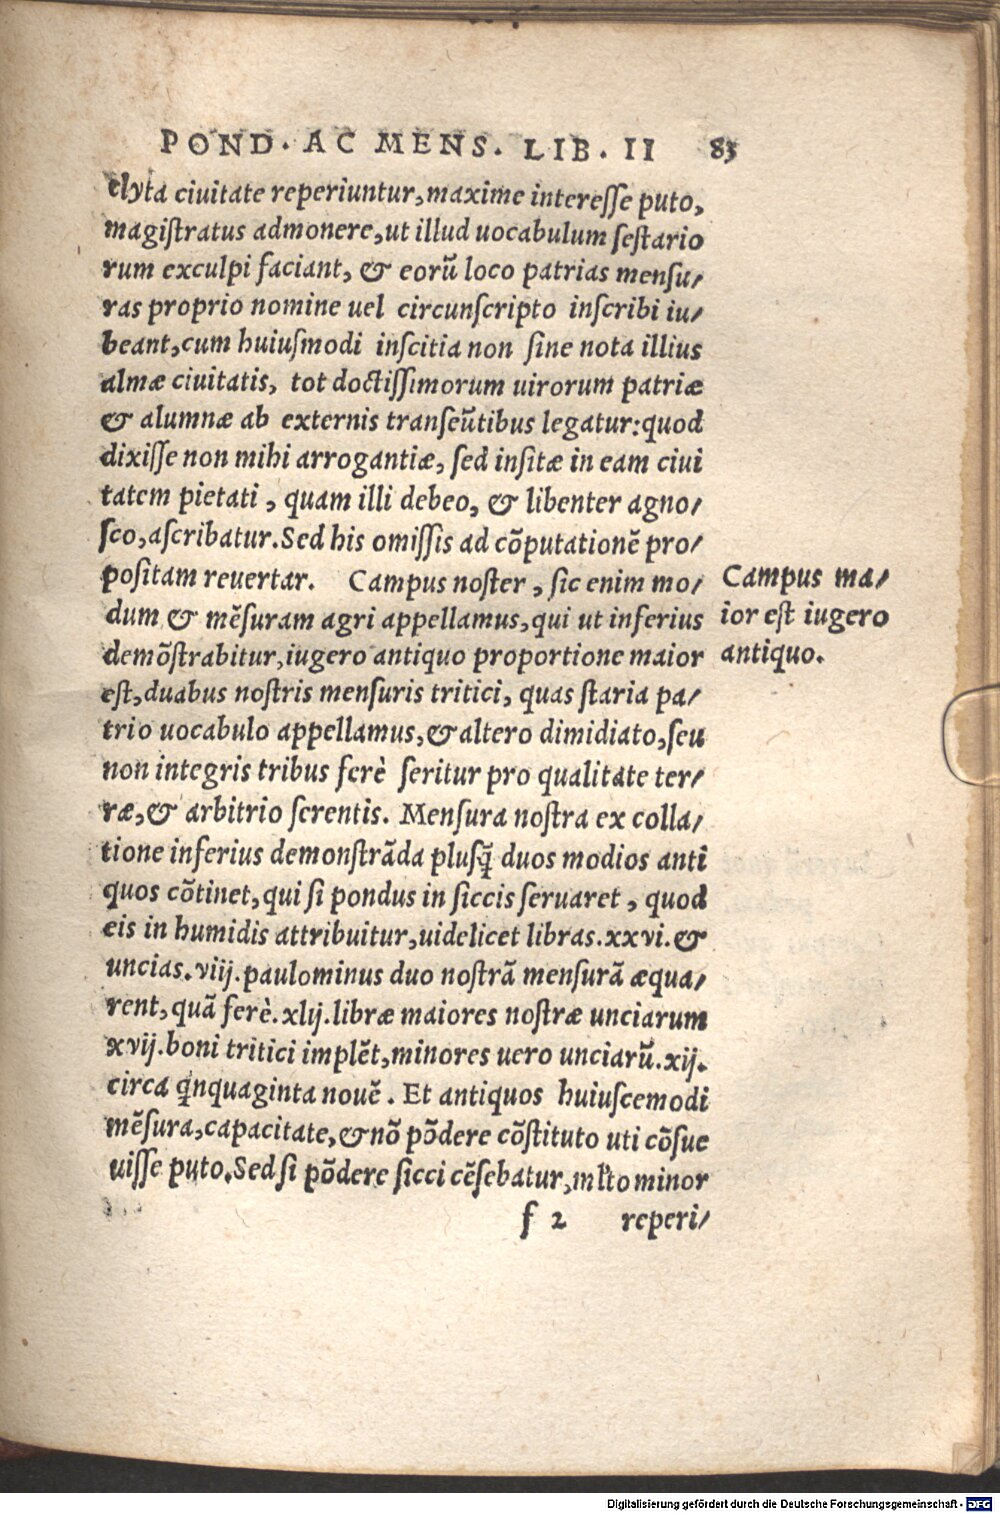 POND. AC MENS. LIB. II 83
clyta ciuitate reperiuntur, maxime interesse puto,
magistratus admonere, ut illud uocabulum sestario
rum exculpi faciant, & eorũ loco patrias mensu/
ras proprio nomine uel circunscripto inscribi iu/
beant, cum huiusmodi inscitia non sine nota illius
almæ ciuitatis, tot doctissimorum uirorum patriæ
& alumnæ ab externis transeũtibus legatur: quod
dixisse non mihi arrogantiæ, sed insitæ in eam ciui
tatem pietati, quam illi debeo, & libenter agno/
sco, ascribatur. Sed his omissis ad cõputationẽ pro/
positam reuertar. Campus noster, sic enim mo/
dum & mẽsuram agri appellamus, qui ut inferius
demõstrabitur, iugero antiquo proportione maior
est, duabus nostris mensuris tritici, quas staria pa/
trio uocabulo appellamus, & altero dimidiato, seu
non integris tribus ferè seritur pro qualitate ter/
ræ, & arbitrio serentis. Mensura nostra ex colla/
tione inferius demonstrãda plusq̃ duos modios anti
quos cõtinet, qui si pondus in siccis seruaret, quod
eis in humidis attribuitur, uidelicet libras. xxvi. &
uncias. viij. paulominus duo nostrã mensurã æqua/
rent, quã ferè. xlij. libræ maiores nostræ unciarum
xvij. boni tritici implẽt, minores uero unciarũ. xij.
circa q̃nquaginta nouẽ. Et antiquos huiuscemodi
mẽsura, capacitate, & nõ põdere cõstituto uti cõsue
uisse puto. Sed si põdere sicci cẽsebatur, ml̃to minor
f 2 reperi/
Campus ma/
ior est iugero
antiquo.
Digitalisierung gefördert durch die Deutsche Forschungsgemeinschaft - DFG